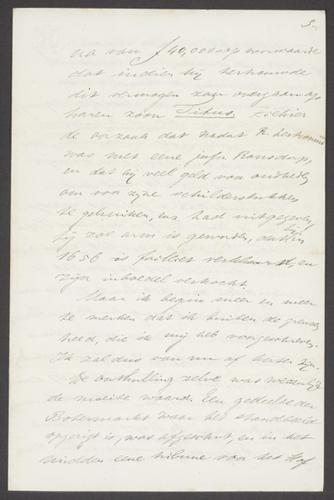 5.
na van f 40,000 op voorwaarde
dat indien hij hertrouwde
dit vermogen zou overgaan op
haren zoon Titus. Ziehier
de oorzaak dat nadat R. hertrouwd
was met eene jufvr Ransdorp,
en dat hij veel geld voor oudheden
om voor zijne schilderstukken
te gebruiken, enz had uitgegeven,
hij zoo arm is geworden, dat hij in
1656 is failliet verklaard, en
zijn inboedel verkocht.
Maar ik begin meer en meer
te merken dat ik buiten de grens
treed, die ik mij heb voorgeschreven.
Ik zal dus van nu af korter zijn.
De onthulling zelve was wezenlijk
de moeite waard. Een gedeelte der
Botermarkt waar het standbeeld
opgerigt is, was afgeschut, en in het
midden eene tribune voor het Hof